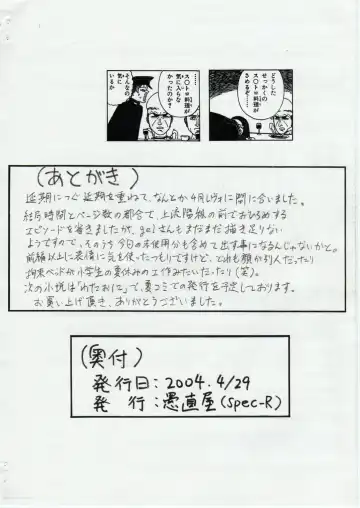 どうした
せっかくの
ス〇トロ料理が
さめるぞ……
……
ス〇トロ料理が
気に入らな
かったのか？
そんなの
気に
いるか
(あとがき)
延期につぐ延期を重ねて、なんとか4月レヴォに間に合いました。
結局時間とページ数の都合で、上流階級の前でおひろめする
エピソードを省きましたが、golさんもまだまだ描き足りない
ようですので、そのうち今回の未使用分も含めて出す事になるんじゃないかと。
前編以上に表情に気を使ったつもりですけど、どれも顔が別人だったり
拘束ベッドが小学生の夏休みの工作みたいだったり(笑)。
次の小説は「わたおに」で、夏コミでの発行を予定しております。
お買い上げ頂き、ありがとうございました。
(奥付)
発行日：2004.4/29
発　行：愚直屋(spec-R)